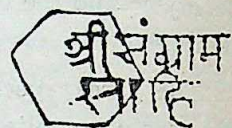 श्री संग्राम
साहि